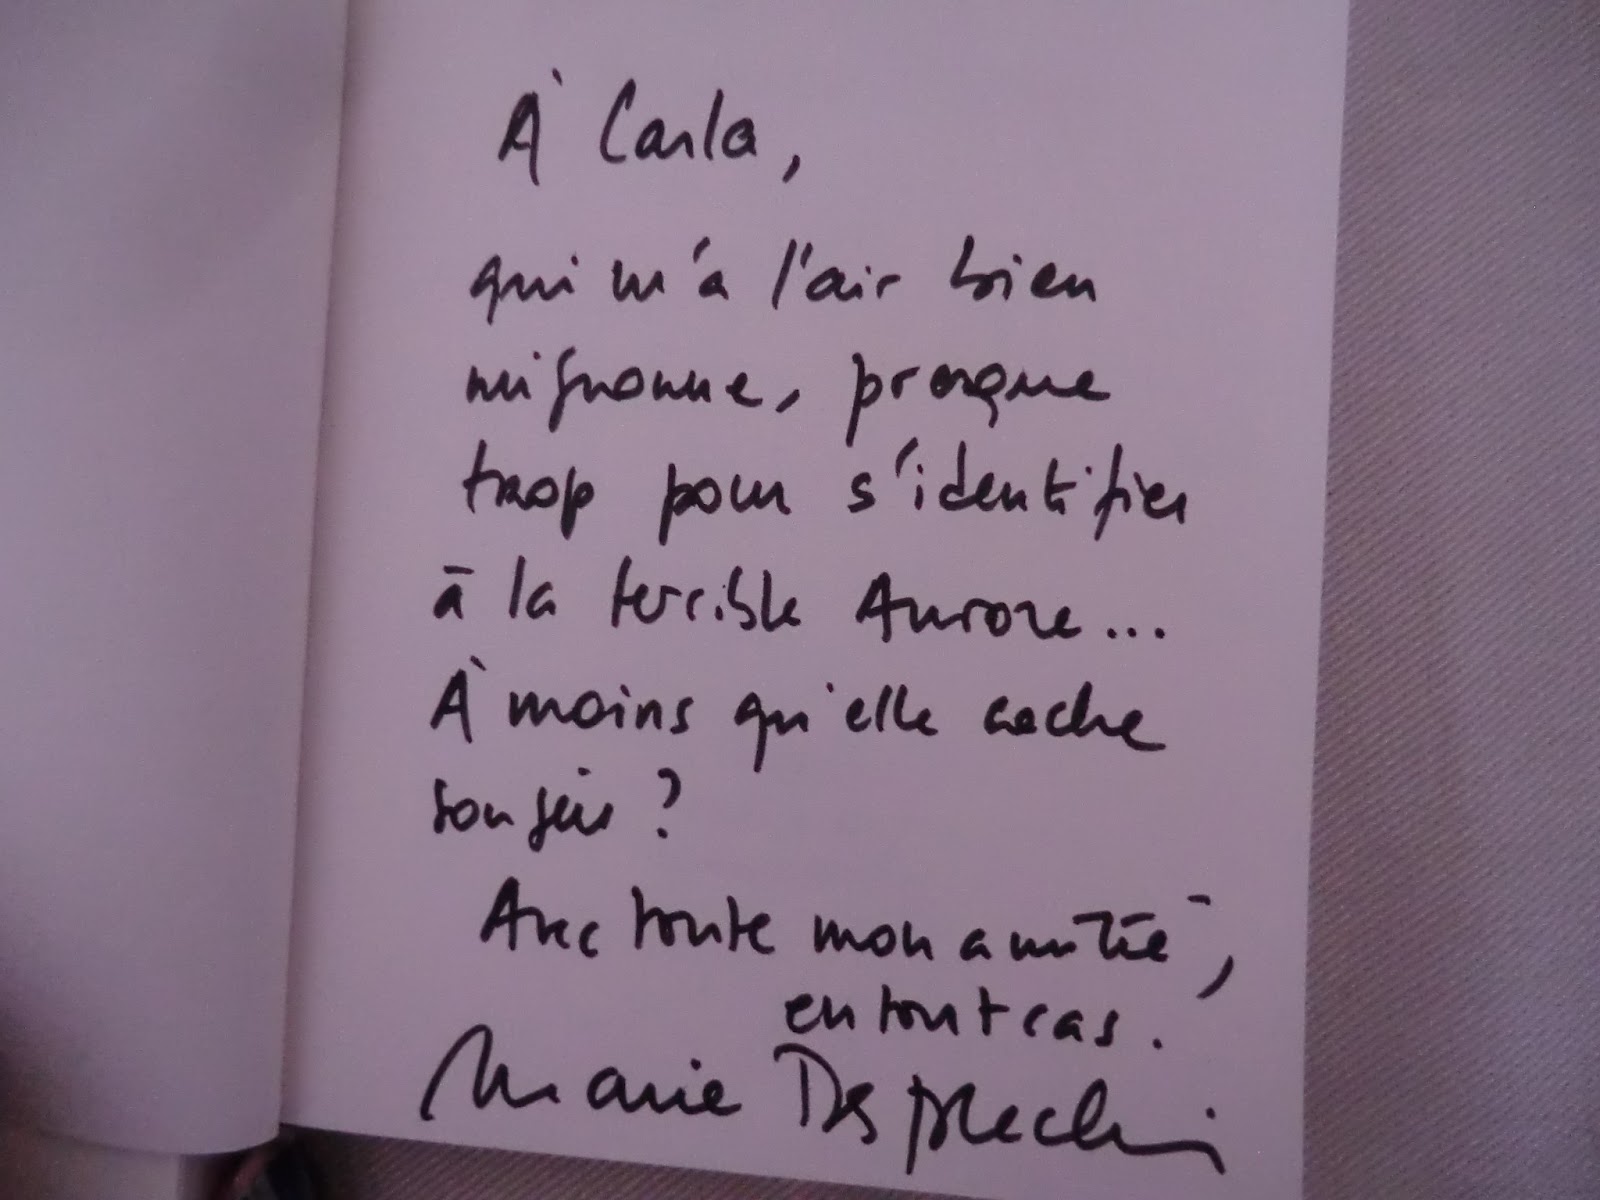 À Carla,
qui m'a l'air bien
mignonne, presque
trop pour s'identifier
à la terrible Aurore...
À moins qu'elle cache
son jeu ?
Avec toute mon amitié,
en tout cas.
Marie Desplechin